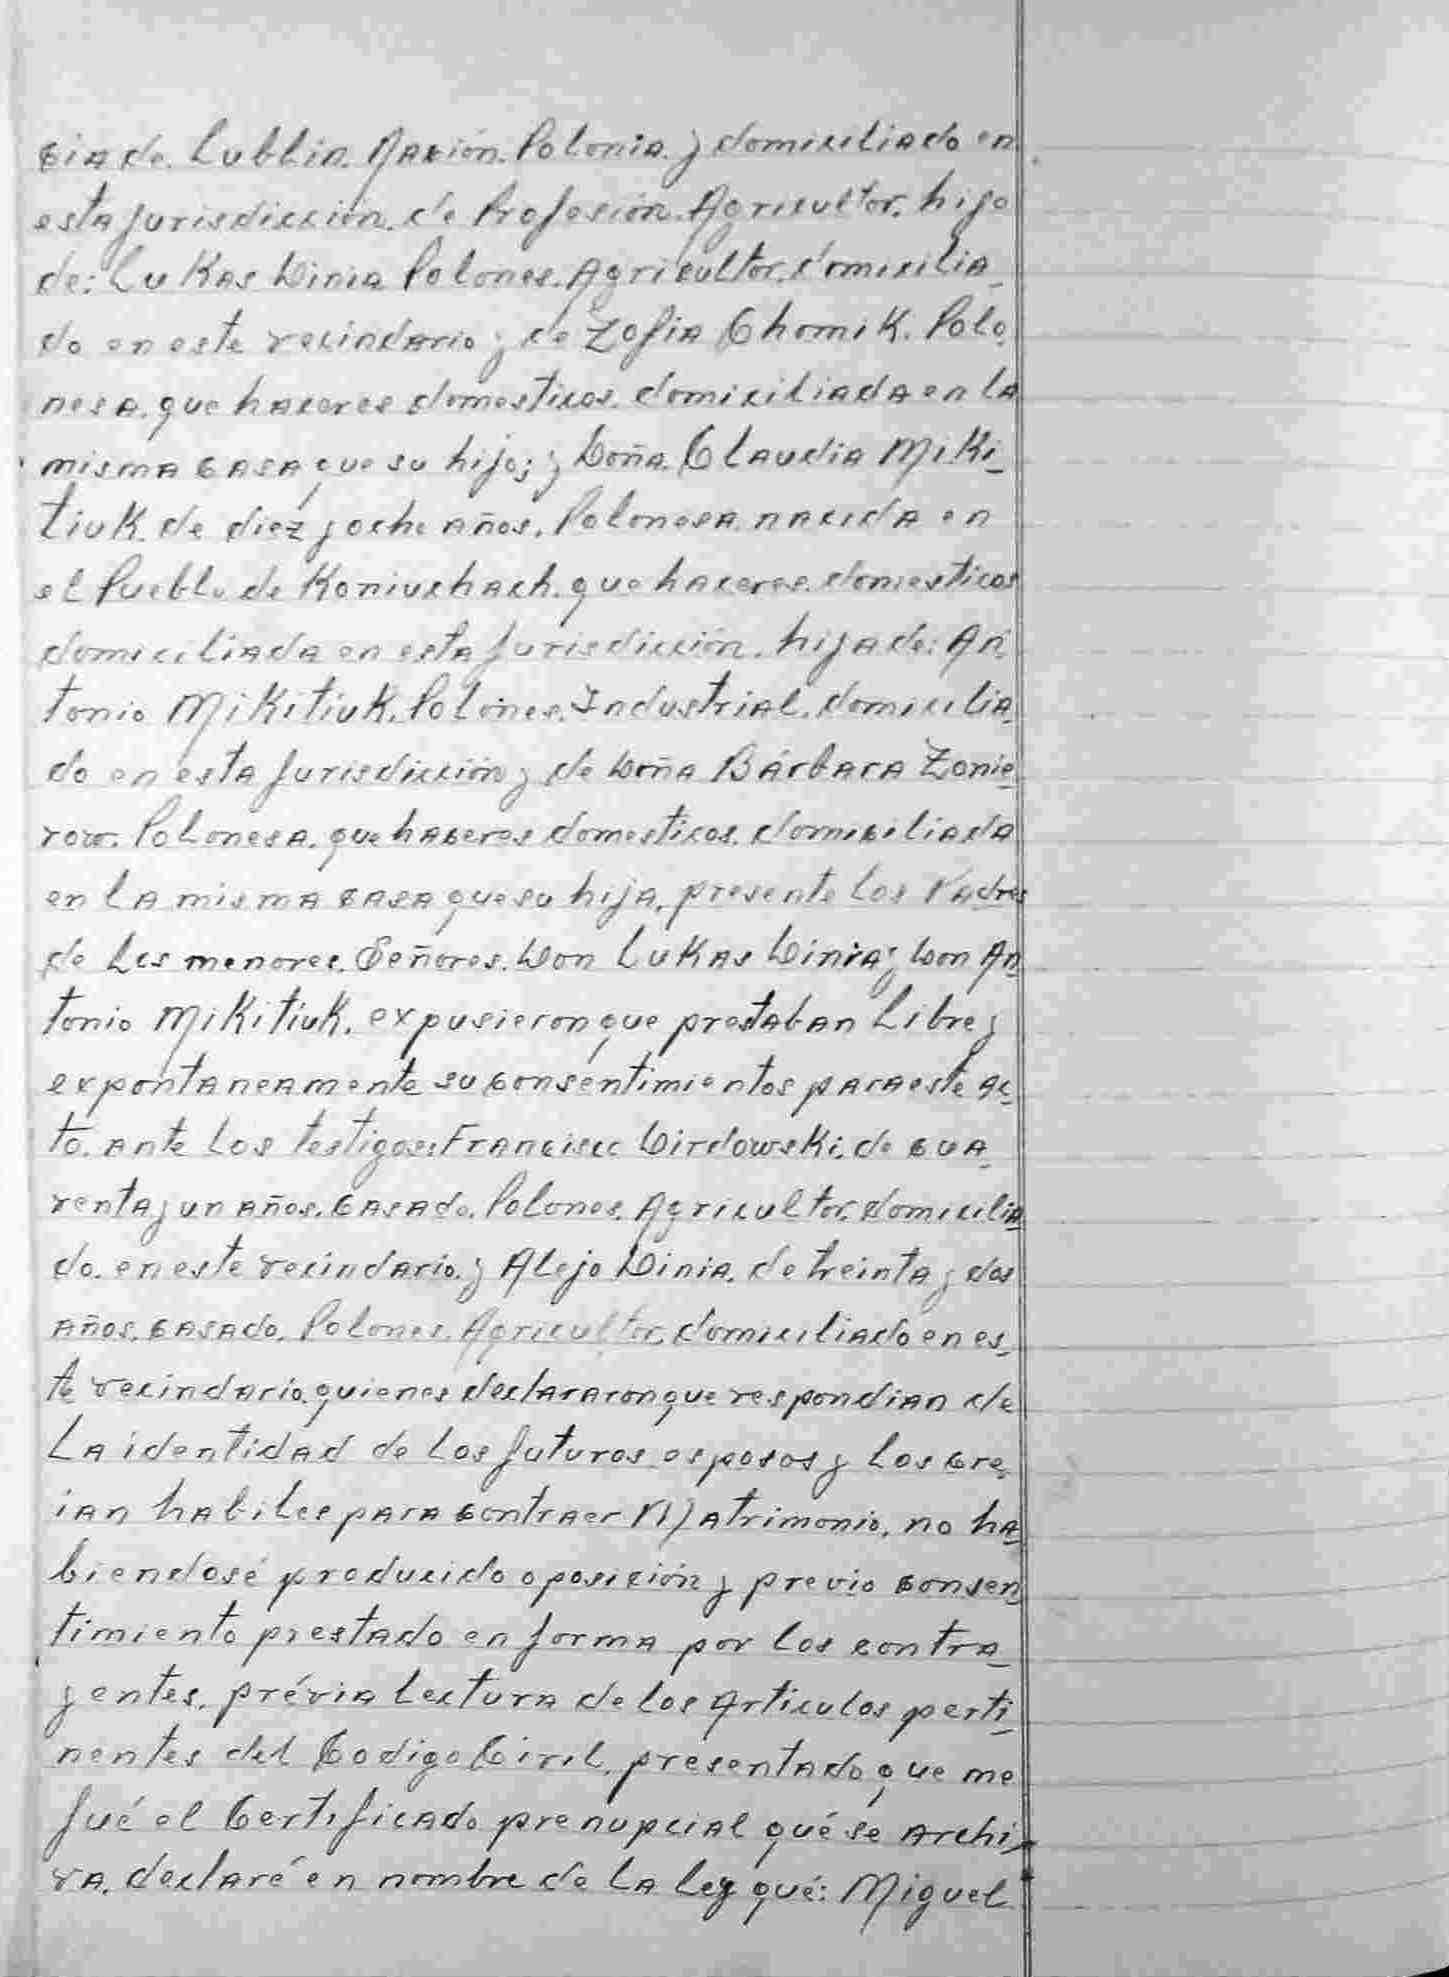 cia de. Lublin. Nación. Polonia. y domiciliado en
esta Jurisdicción. de Profesión. Agricultor. hijo
de: Lukas Dinia Polones. Agricultor. domicilia_
do en este vecindario y de Zofia Chomik. Polo_
nesa. que haceres domesticos. domiciliada en la
misma casa que su hijo; y Doña. Claudia Miki_
tiuk. de diez y ocho años. Polonesa. nacida en
el Pueblo de Koniuchach. que haceres. domesticos
domiciliada en esta Jurisdicción. hija de: An_
tonio Mikitiuk. Polones. Industrial. domicilia_
do en esta Jurisdicción y de Doña Bárbara Zonie_
row. Polonesa. que haceres domesticos. domiciliada
en la misma casa que su hija. presente los Padres
de los menores. Señores. Don Lukas Dinia y Don An_
tonio Mikitiuk. expusieron que prestaban libre y
expontaneamente su consentimientos para este ac_
to. ante los testigos: Francisco Dirdowski. de cua_
renta y un años. casado. Polones. Agricultor. domicilia_
do. en este vecindario. y Alejo Dinia. de treinta y dos
años. casado. Polones. Agricultor. domiciliado en es_
te vecindario. quienes declararon que respondian de
la identidad de los futuros esposos y los cre_
ian habiles para contraer Matrimonio. no ha_
biendosé producido oposición y previo consen_
timiento prestado en forma por los contra_
yentes. prévia lectura de los Articulos perti_
nentes del Codigo Civil. presentado que me
fué el Certificado prenupcial qué se archi_
va. declaré en nombre de la ley qué: Miguel